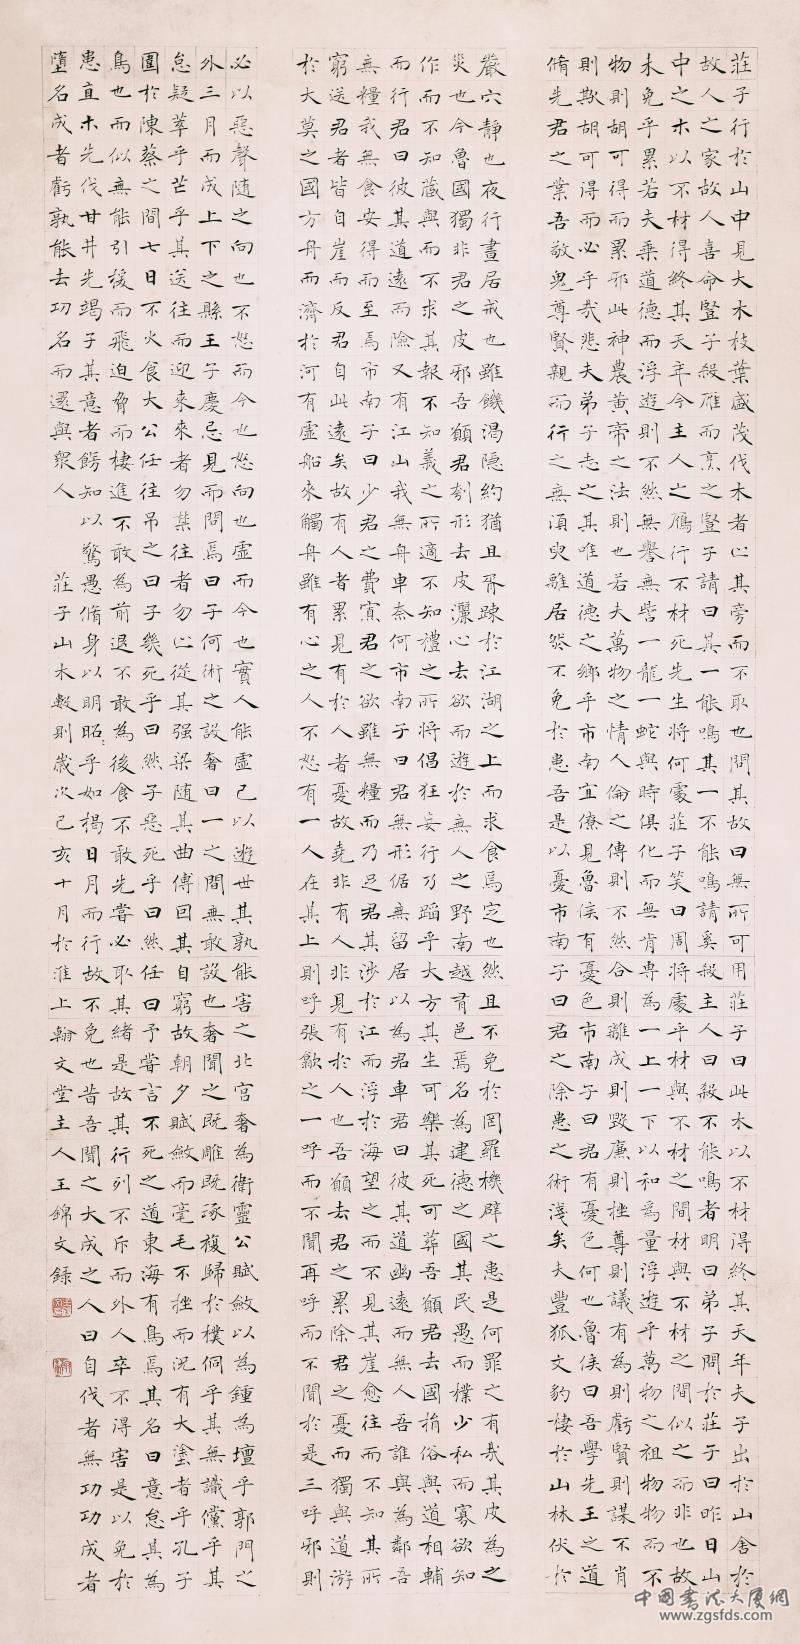 莊子行於山中見大木枝葉盛茂伐木者止其旁而不取也問其故曰無所可用莊子曰此木以不材得終其天年夫子出於山舍於
故人之家故人喜命豎子殺雁而烹之豎子請曰其一能鳴其一不能鳴請奚殺主人曰殺不能鳴者明日弟子問於莊子曰昨日山
中之木以不材得終其天年今主人之雁行不材死先生將何處莊子笑曰周將處乎材與不材之間材與不材之間似之而非也故
未免乎累若夫乘道德而浮遊則不然無譽無訾一龍一蛇與時俱化而無肯專為一上一下以和為量浮遊乎萬物之祖物物而不
物則胡可得而累邪此神農黃帝之法則也若夫萬物之情人倫之傳則不然合則離成則毀廉則挫尊則議有為則虧賢則謀不肖
則欺胡可得而必乎哉悲夫弟子志之其唯道德之鄉乎市南宜僚見魯侯有憂色市南子曰君有憂色何也魯侯曰吾學先王之道
脩先君之業吾敬鬼尊賢親而行之無須臾離居然不免於患吾是以憂市南子曰君之除患之術淺矣夫豐狐文豹棲於山林伏於
巖穴靜也夜行晝居戒也雖饑渴隱約猶且胥疎於江湖之上而求食焉定也然且不免於罔羅機辟之患是何罪之有哉其皮為之
災也今魯國獨非君之皮邪吾願君刳形去皮灑心去欲而遊於無人之野南越有邑焉名為建德之國其民愚而樸少私而寡欲知
作而不知藏與而不求其報不知義之所適不知禮之所將倡狂妄行乃蹈乎大方其生可樂其死可葬吾願君去國捐俗與道相輔
而行君曰彼其道遠而險又有江山我無舟車奈何市南子曰君無形倨無留居以為君車君曰彼其道幽遠而無人吾誰與為鄰吾
無糧我無食安得而至焉市南子曰少君之費寡君之欲雖無糧而乃足君其涉於江而浮於海望之而不見其崖愈往而不知其所
窮送君者皆自崖而反君自此遠矣故有人者累見有於人者憂故堯非有人非見有於人也吾願去君之累除君之憂而獨與道游
於大莫之國方舟而濟於河有虛船來觸舟雖有心之人不怒有一人在其上則呼張歙之一呼而不聞再呼而不聞於是三呼邪則
必以惡聲隨之向也不怒而今也怒向也虛而今也實人能虛己以遊世其孰能害之北宮奢為衛靈公賦斂以為鍾為壇乎郭門之
外三月而成上下之縣王子慶忌見而問焉曰子何術之設奢曰一之間無敢設也奢聞之既雕既琢復歸於樸侗乎其無識儻乎其
怠疑萃乎芒乎其送往而迎來來者勿禁往者勿止從其强梁隨其曲傅因其自窮故朝夕賦斂而毫毛不挫而況有大塗者乎孔子
圍於陳蔡之間七日不火食大公任往吊之曰子幾死乎曰然子惡死乎曰然任曰予嘗言不死之道東海有鳥焉其名曰意怠其為
鳥也而似無能引援而飛迫脅而棲進不敢為前退不敢為後食不敢先嘗必取其緒是故其行列不斥而外人卒不得害是以免於
患直木先伐甘井先竭子其意者飾知以驚愚脩身以明昭:乎如揭日月而行故不免也昔吾聞之大成之人曰自伐者無功功成者
墮名成者虧孰能去功名而還與衆人 莊子山木數則歲次己亥十月於淮上翰文堂主人王錦文録
中国书法大厦網
www.zgsfds.com